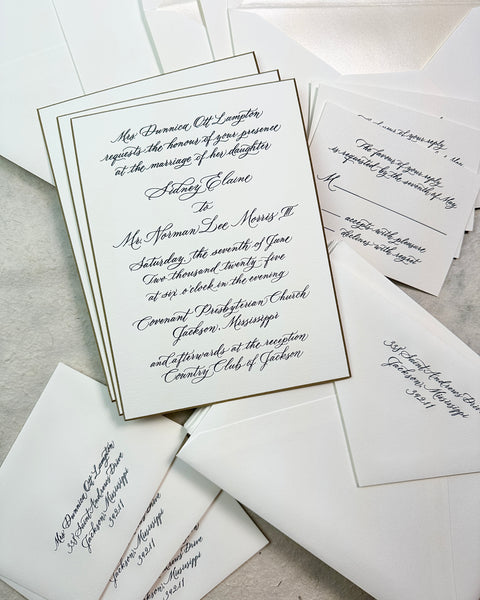 Mrs Dunnica Ott Lampton
requests the honour of your presence
at the marriage of her daughter
Sidney Elaine
to
Mr. Norman Lee Morris III
Saturday the seventh of June
Two thousand twenty five
at six o'clock in the evening
Covenant Presbyterian Church
Jackson, Mississippi
and afterwards at the reception
Country Club of Jackson
of your reply
The favor of your reply
is requested by the seventh of May
M
accepts with pleasure
declines with regret
Saint Andrews Drive
Jackson, Mississippi
39211
Mrs Dunnica Ott Lampton
Saint Andrews Drive
Jackson, Mississippi
39211
Jackson, Mississippi
39211
Drive
Jackson, Mississippi
39211